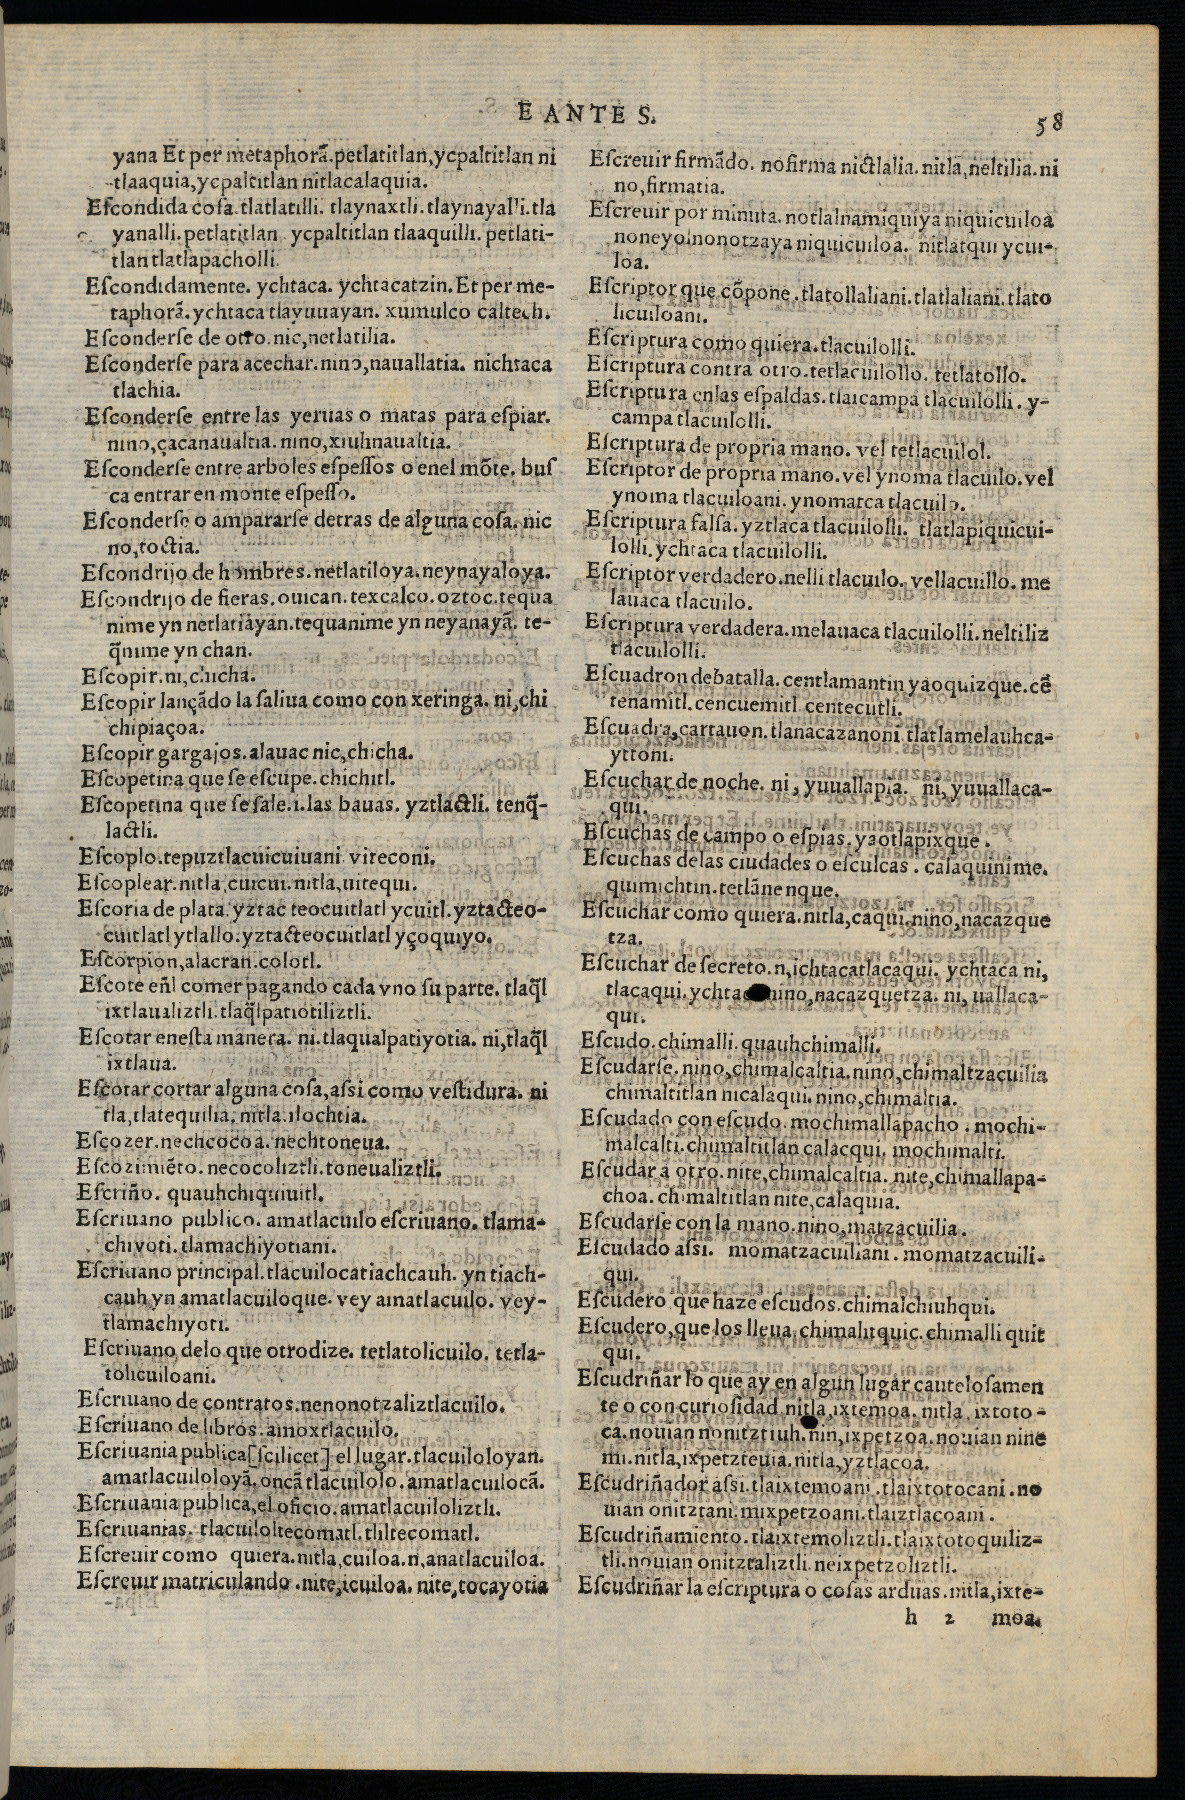 E ANTES.
58
yana Et per metaphorã.petlatitlan,ycpaltitlan ni
tlaaquia,ycpaltitlan nitlacalaquia.
Eſcondida coſa.tlatlatilli. tlaynaxtli.tlaynayalli.tla
yanalli.petlatitlan ycpaltitlan tlaaquilli. petlati-
tlan tlatlapacholli.
Eſcondidamente. ychtaca. ychtacatzin. Et per me-
taphorã. ychtaca tlayuuayan. xumulco caltech.
Eſconderſe de otro. nic,netlatilia.
Eſconderſe para acechar. nino,nauallatia. nichtaca
tlachia.
Eſconderſe entre las yeruas o matas para eſpiar.
nino,çacanaualtia. nino,xiuhnaualtia.
Eſconderſe entre arboles eſpeſſos o enel mõte. buſ
ca entrar en monte eſpeſſo.
Eſconderſe o ampararſe detras de alguna coſa. nic
no,toctia.
Eſcondrijo de hombres. netlatiloya. neynayaloya.
Eſcondrijo de fieras. ouican. texcalco. oztoc. tequa
nime yn netlatiayan. tequanime yn neyanayã. te-
q̃nime yn chan.
Eſcopir. ni,chicha.
Eſcopir lançãdo la ſaliua como con xeringa. ni,chi
chipiaçoa.
Eſcopir gargajos. alauac nic,chicha.
Eſcopetina que ſe eſcupe. chichitl.
Eſcopetina que ſe ſale.i.las bauas. yztlactli. tenq̃-
lactli.
Eſcoplo. tepuztlacuicuiuani viteconi.
Eſcoplear. nitla,cuicui. nitla,uitequi.
Eſcoria de plata. yztac teocuitlatl ycuitl. yztacteo-
cuitlatl ytlallo. yztacteocuitlatl yçoquiyo.
Eſcorpion,alacran. colotl.
Eſcote eñl comer pagando cada vno ſu parte. tlaq̃l
ixtlaualiztli. tlaq̃lpatiotiliztli.
Eſcotar eneſta manera. ni.tlaqualpatiyotia. ni,tlaq̃l
ixtlaua.
Eſcotar cortar alguna coſa,aſſi como veſtidura. ni
tla,tlatequilia. nitla.ilochtia.
Eſcozer. nechcocoa. nechtoneua.
Eſcozimiẽto. necocoliztli. toneualiztli.
Eſcriño. quauhchiquiuitl.
Eſcriuano publico. amatlacuilo eſcriuano. tlama-
chiyoti. tlamachiyotiani.
Eſcriuano principal. tlacuilocatiachcauh. yn tiach-
cauh yn amatlacuiloque. vey amatlacuilo. vey-
tlamachiyoti.
Eſcriuano delo que otro dize. tetlatolicuilo. tetla-
tolicuiloani.
Eſcriuano de contratos. nenonotzaliztlacuilo.
Eſcriuano de libros. amoxtlacuilo.
Eſcriuania publica[ſcilicet] el lugar. tlacuiloloyan.
amatlacuiloloyã. oncã tlacuilolo. amatlacuilocã.
Eſcriuania publica,el oficio. amatlacuiloliztli.
Eſcriuanias. tlacuiloltecomatl. tliltecomatl.
Eſcreuir como quiera. nitla,cuiloa. n,amatlacuiloa.
Eſcreuir matriculando. nite,icuiloa. nite,tocayotia
Eſcreuir firmãdo. nofirma nictlalia. nitla,neltilia. ni
no,firmatia.
Eſcreuir por minuta. notlalnamiquiya niquicuiloa
noneyolnonotzaya niquicuiloa. nitlatqui ycui-
loa.
Eſcriptor que cõpone. tlatollaliani. tlatlaliani. tlato
licuiloani.
Eſcriptura como quiera. tlacuilolli.
Eſcriptura contra otro. tetlacuilollo. tetlatollo.
Eſcriptura enlas eſpaldas. tlaicampa tlacuilolli. y-
campa tlacuilolli.
Eſcriptura de propria mano. vel tetlacuilol.
Eſcriptor de propria mano. vel ynoma tlacuilo. vel
ynoma tlacuiloani. ynomatca tlacuilo.
Eſcriptura falſa. yztlaca tlacuilolli. tlatlapiquicui-
lolli. ychtaca tlacuilolli.
Eſcriptor verdadero. nelli tlacuilo. vellacuillo. me
lauaca tlacuilo.
Eſcriptura verdadera. melauaca tlacuilolli. neltiliz
tlacuilolli.
Eſcuadron de batalla. centlamantin yaoquizque. cẽ
tenamitl. cencuemitl centecutli.
Eſcuadra,cartauon. tlanacazanoni tlatlamelauhca-
yttoni.
Eſcuchar de noche. ni, yuuallapia. ni, yuuallaca-
qui.
Eſcuchas de campo o eſpias. yaotlapixque.
Eſcuchas delas ciudades o eſculcas. calaquinime.
quimichtin. tetlãnenenque.
Eſcuchar como quiera. nitla,caqui. nino,nacazque
tza.
Eſcuchar de ſecreto. n,ichtacatlacaqui. ychtaca ni,
tlacaqui. ychtaca nino,nacazquetza. ni, uallaca-
qui.
Eſcudo. chimalli. quauhchimalli.
Eſcudarſe. nino,chimalcaltia. nino,chimaltzacuilia
chimaltitlan nicalaqui. nino,chimaltia.
Eſcudado con eſcudo. mochimallapacho. mochi-
malcalti. chimaltitlan calacqui. mochimalti.
Eſcudar a otro. nite,chimalcaltia. nite,chimallapa-
choa. chimaltitlan nite,calaquia.
Eſcudarſe con la mano. nino,matzacuilia.
Eſcudado aſſi. momatzacuiliani. momatzacuili-
qui.
Eſcudero que haze eſcudos. chimalchiuhqui.
Eſcudero,que los lleua. chimalitquic. chimalli quit
qui.
Eſcudriñar lo que ay en algun lugar cautoloſamen
te o con curioſidad. nitla,ixtemoa. nitla ixtoto-
ca. nouian nonitztiuh. nin,ixpetzoa. nouian nine
mi. nitla,ixpetzteuia. nitla,yztlacoa.
Eſcudriñador aſſi. tlaixtemoani. tlaixtotocani. no
uian onitztani. mixpetzoani. tlaiztlacoani.
Eſcudriñamiento. tlaixtemoliztli. tlaixtotoquiliz-
tli. nouian onitztaliztli. neixpetzoliztli.
Eſcudriñar la eſcriptura o coſas arduas. nitla,ixte-
h 2 moa.